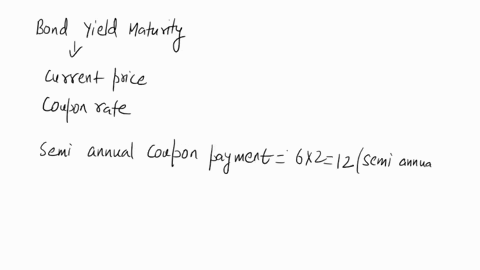 Bond Yield Maturity
Current price
Coupon rate
Semi annual Coupon payment = 6x2=12 (semi annua